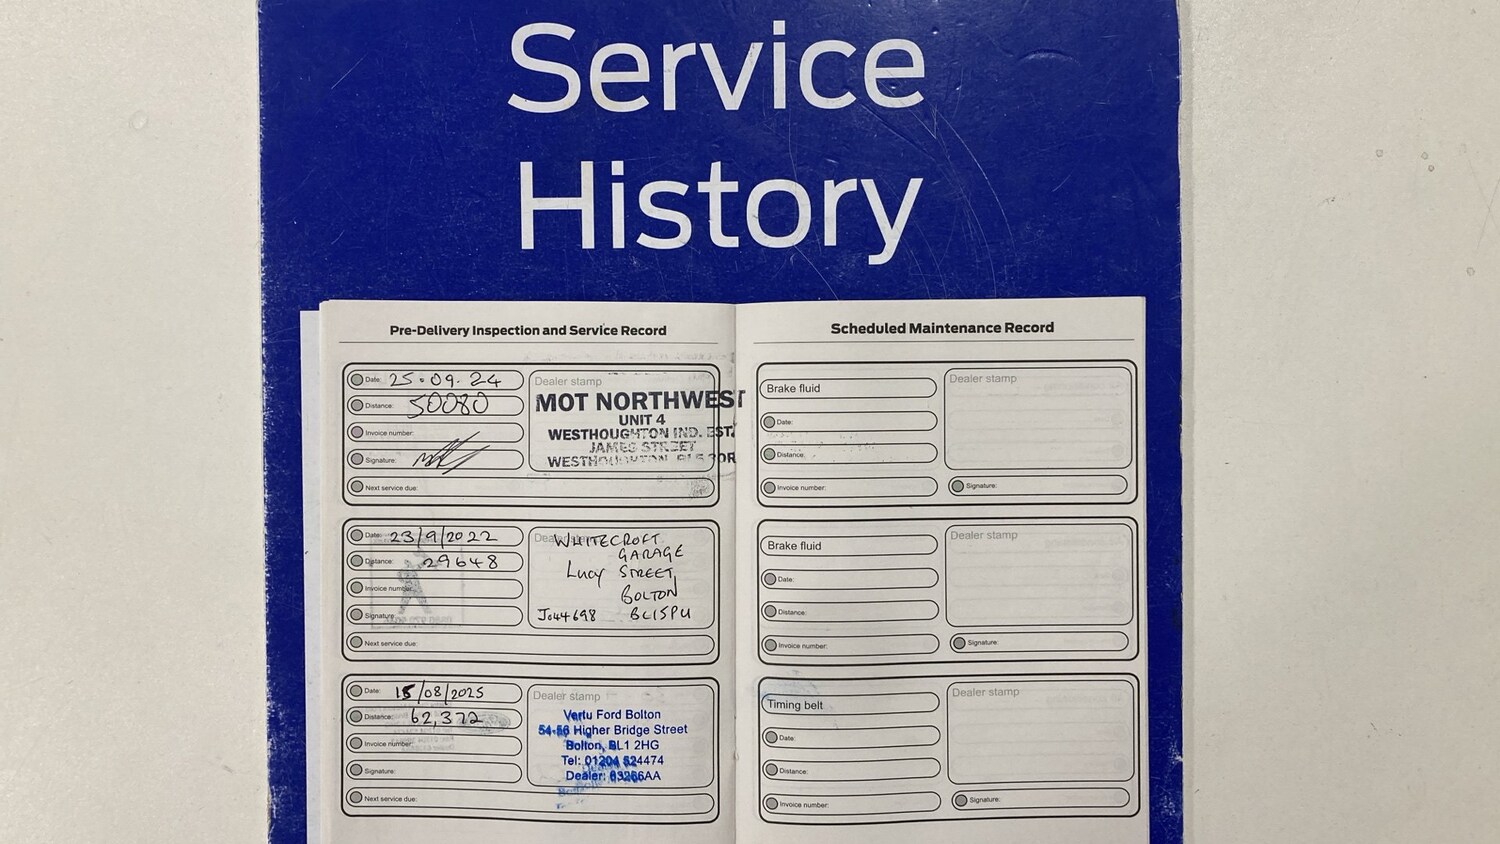 Service
History
Pre-Delivery Inspection and Service Record
Date: 25.09.24
Distance: 50080
Invoice number:
Signature:
Next service due:
Dealer stamp
MOT NORTHWEST
UNIT 4
WESTHOUGHTON IND. EST.
JAMES STREET
WESTHOUGHTON
Date: 23/9/2022
Distance: 29648
Invoice number:
Signature:
Next service due:
WHITECROFT
GARAGE
Lucy STREET
BOLTON
BL15PU
Date: 15/08/2025
Distance: 62,372
Invoice number:
Signature:
Next service due:
Dealer stamp
Vertu Ford Bolton
54-56 Higher Bridge Street
Bolton, BL1 2HG
Tel: 01204 524474
Dealer: 63266AA
Scheduled Maintenance Record
Brake fluid
Date:
Distance:
Invoice number:
Dealer stamp
Signature:
Brake fluid
Date:
Distance:
Invoice number:
Dealer stamp
Signature:
Timing belt
Date:
Distance:
Invoice number:
Dealer stamp
Signature: